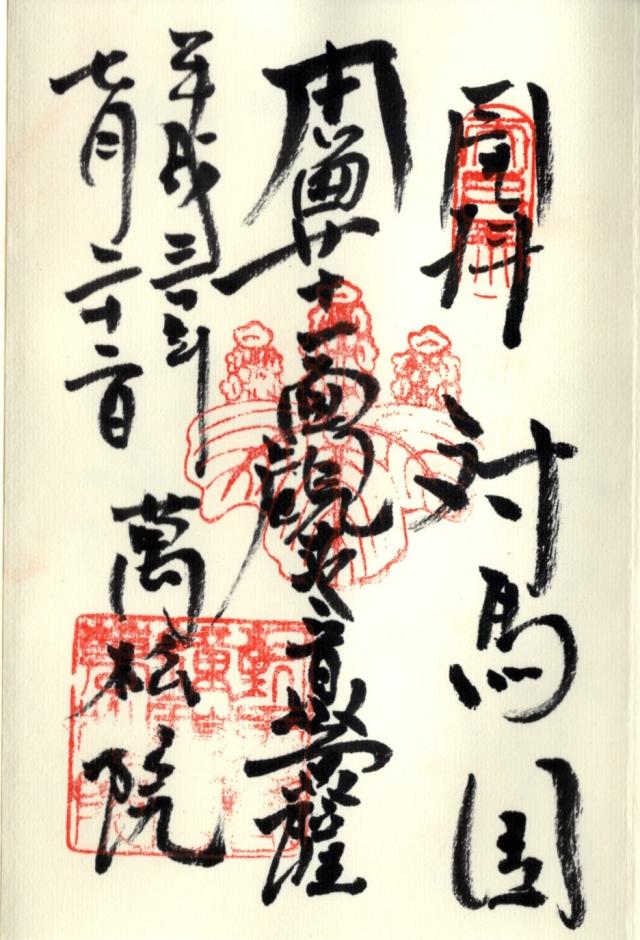 拝 対馬国
本尊十一面観世音菩薩
平成三十年
七月二十二日
萬松院